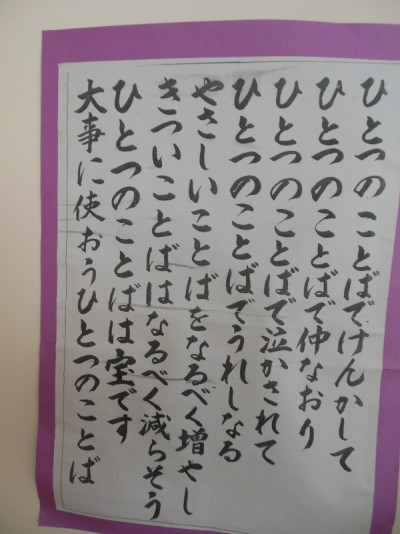 ひとつのことばでけんかして
ひとつのことばで仲なおり
ひとつのことばで泣かされて
ひとつのことばでうれしなる
やさしいことばをなるべく増やし
きついことばはなるべく減らそう
ひとつのことばは宝です
大事に使おうひとつのことば